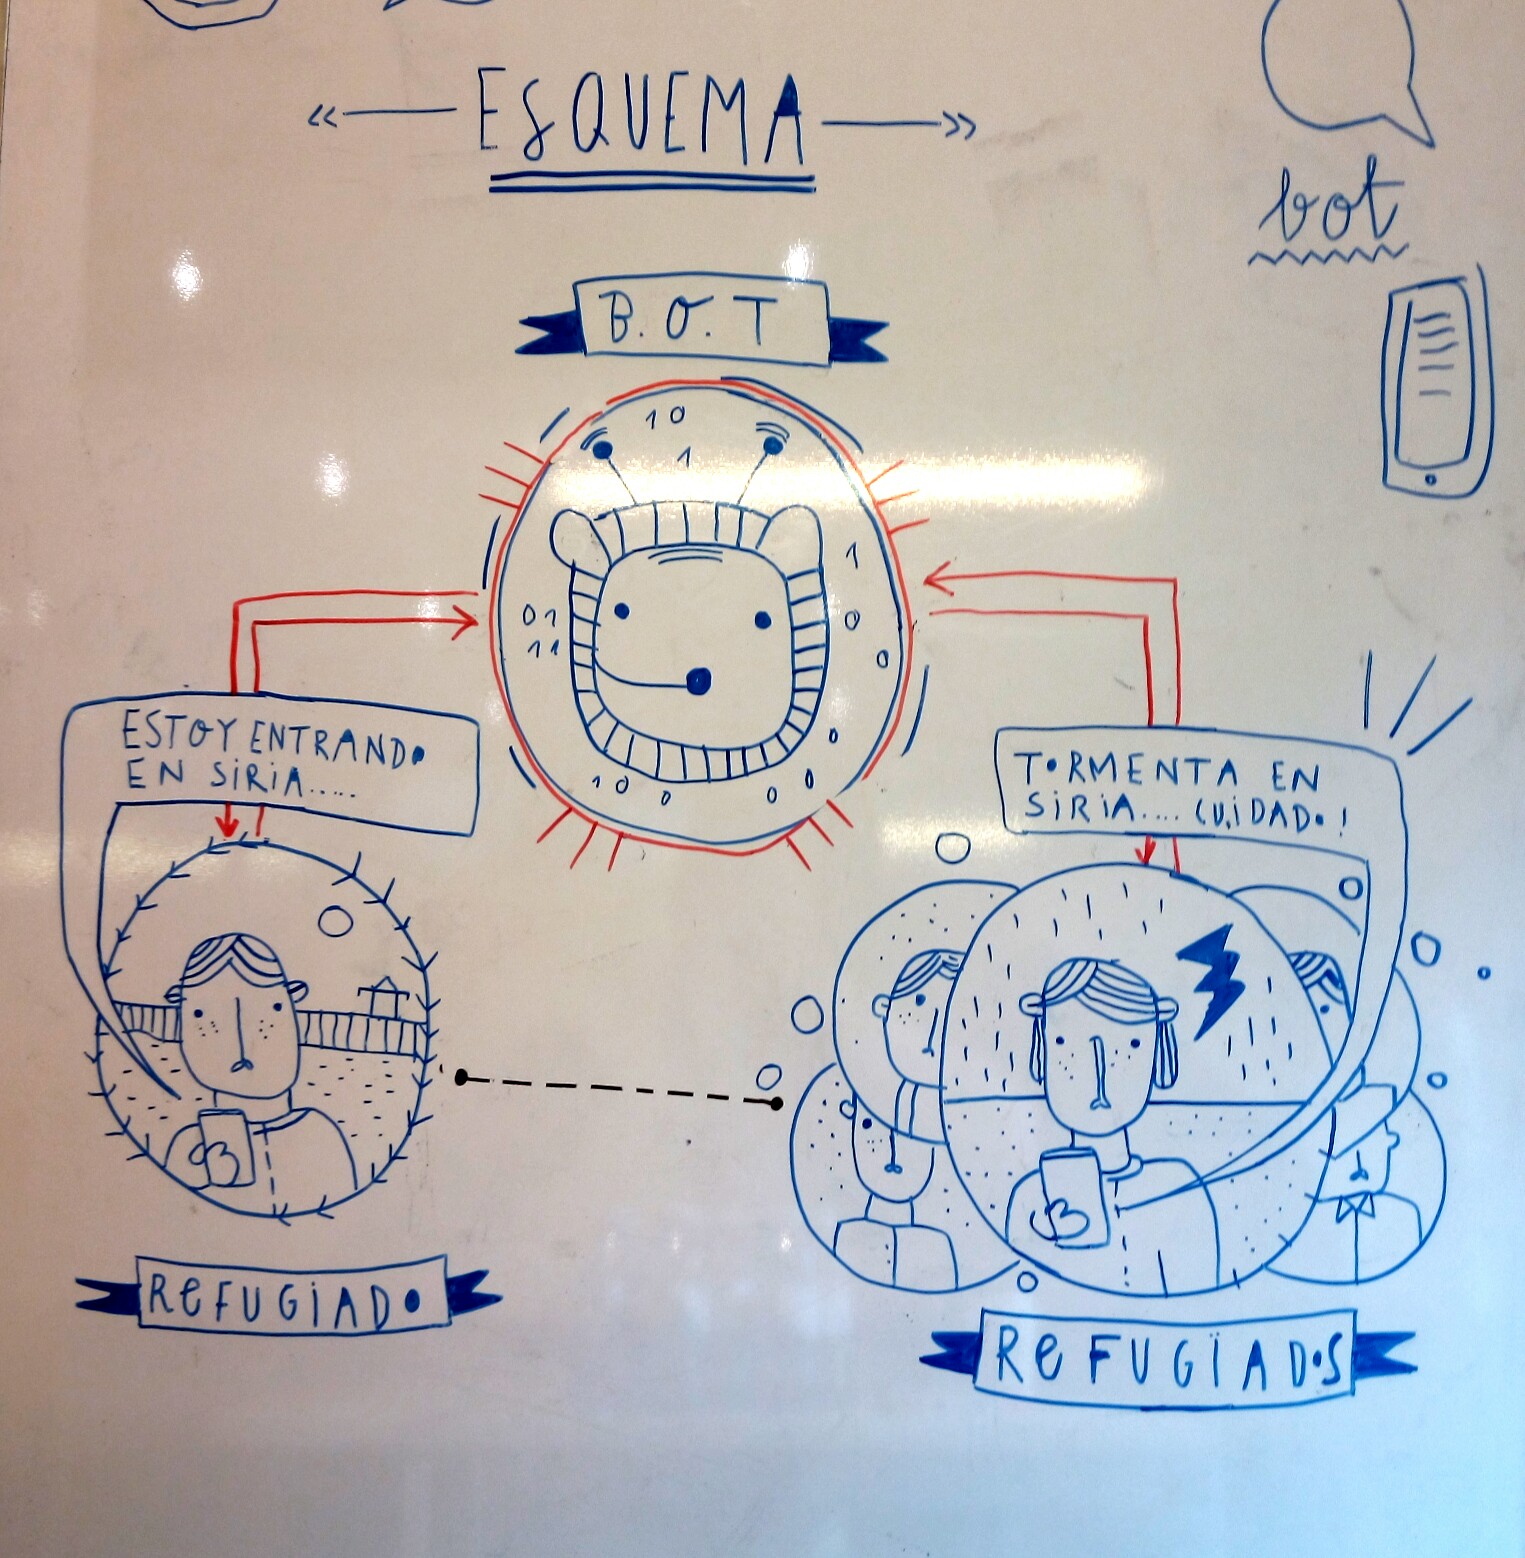 ESQUEMA
bot
B.O.T
10
1
1
01
11
0
0
0
10
0
0
0
ESTOY ENTRANDO
EN SIRIA.....
TORMENTA EN
SIRIA.... CUIDADO!
REFUGIADO
REFUGIADOS